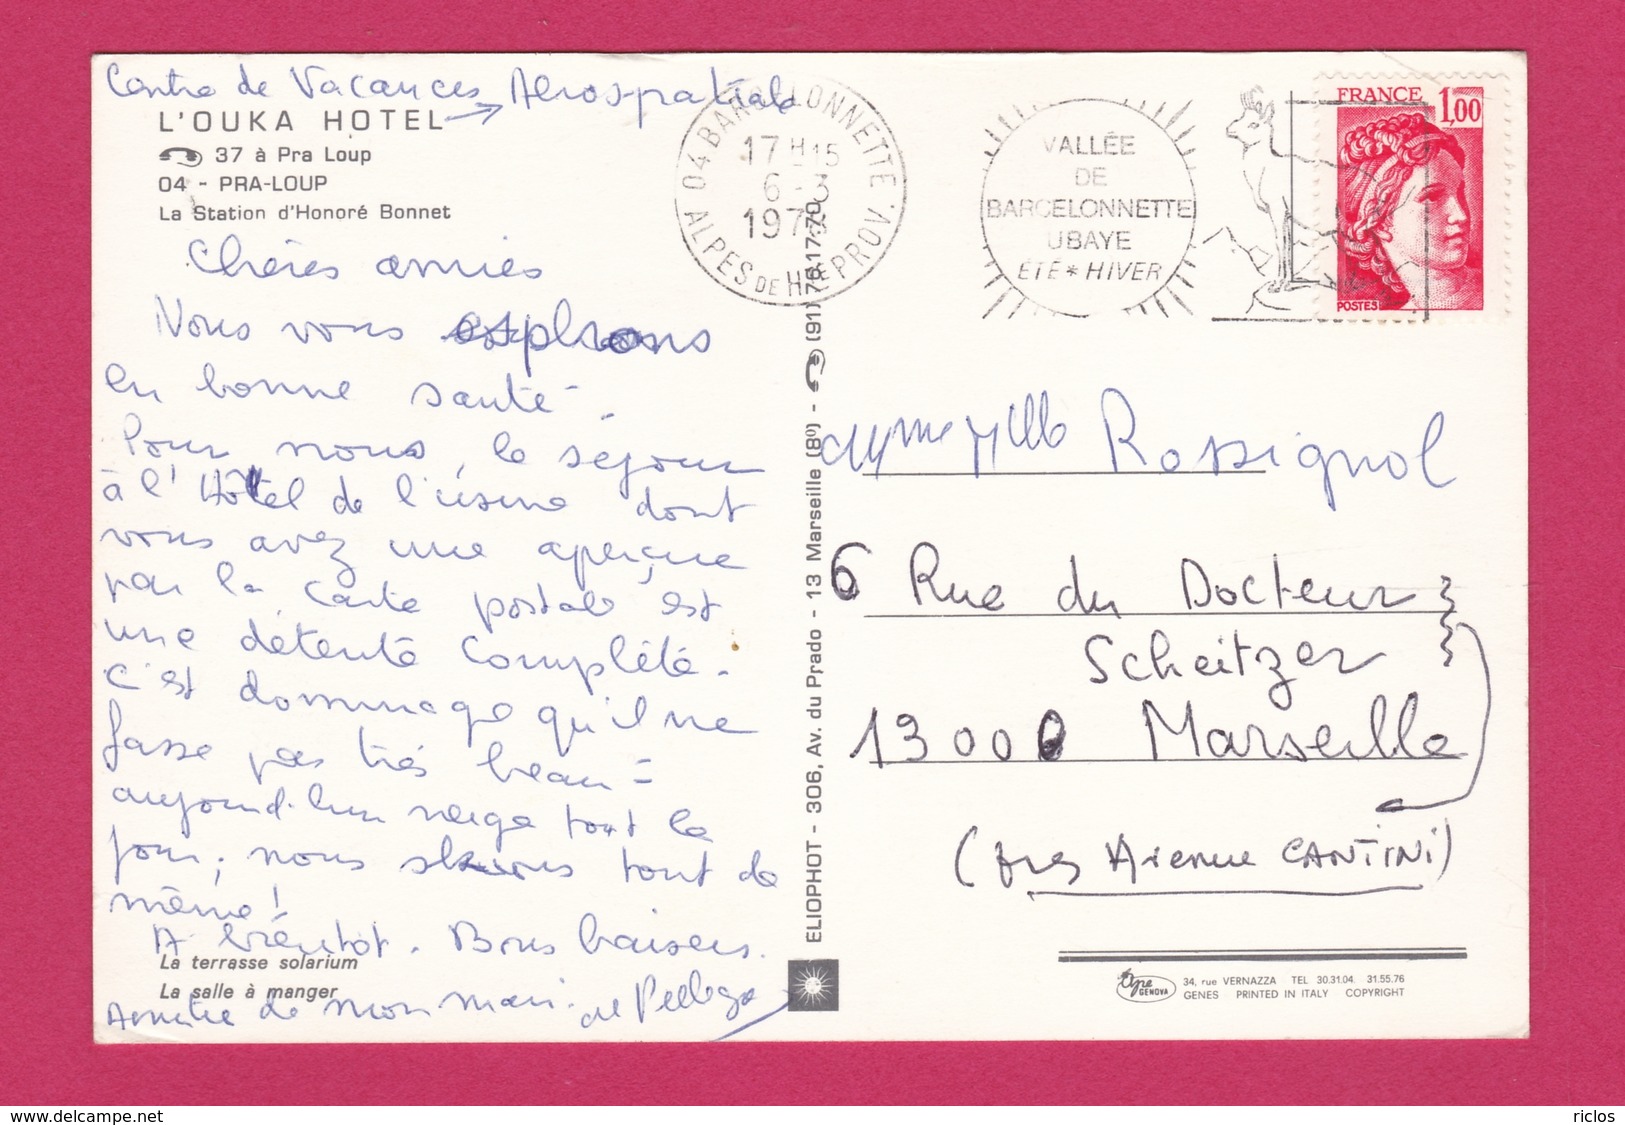 Centre de Vacances Aérospatiale
L'OUKA HOTEL
37 à Pra Loup
04 - PRA-LOUP
La Station d'Honoré Bonnet
Chères amies
Nous vous espérons
en bonne santé.
Pour nous, le séjour
à l'Hôtel de l'usine dont
vous avez une aperçue
par la carte postale est
une détente complète.
C'est dommage qu'il ne
fasse pas très beau =
aujourd'hui neige tout le
jour; nous skions tout de
même!
A bientôt. Bons baisers.
La terrasse solarium
La salle à manger
Amitié de mon mari.
04 BARCELONNETTE
17 H 15
6 - 3
1978
ALPES DE HTE PROV.
VALLÉE
DE
BARCELONNETTE
UBAYE
ÉTÉ * HIVER
FRANCE 1,00
POSTES
ELIOPHOT - 306, Av. du Prado - 13 Marseille (8º) - (91) 76.17.70
Mme Mlle Rossignol
6 Rue du Docteur
Scheitzer
13000 Marseille
(près Avenue CANTINI)
GENOVA
34, rue VERNAZZA TEL 30.31.04 31.55.76
GENES PRINTED IN ITALY COPYRIGHT
www.delcampe.net
riclos